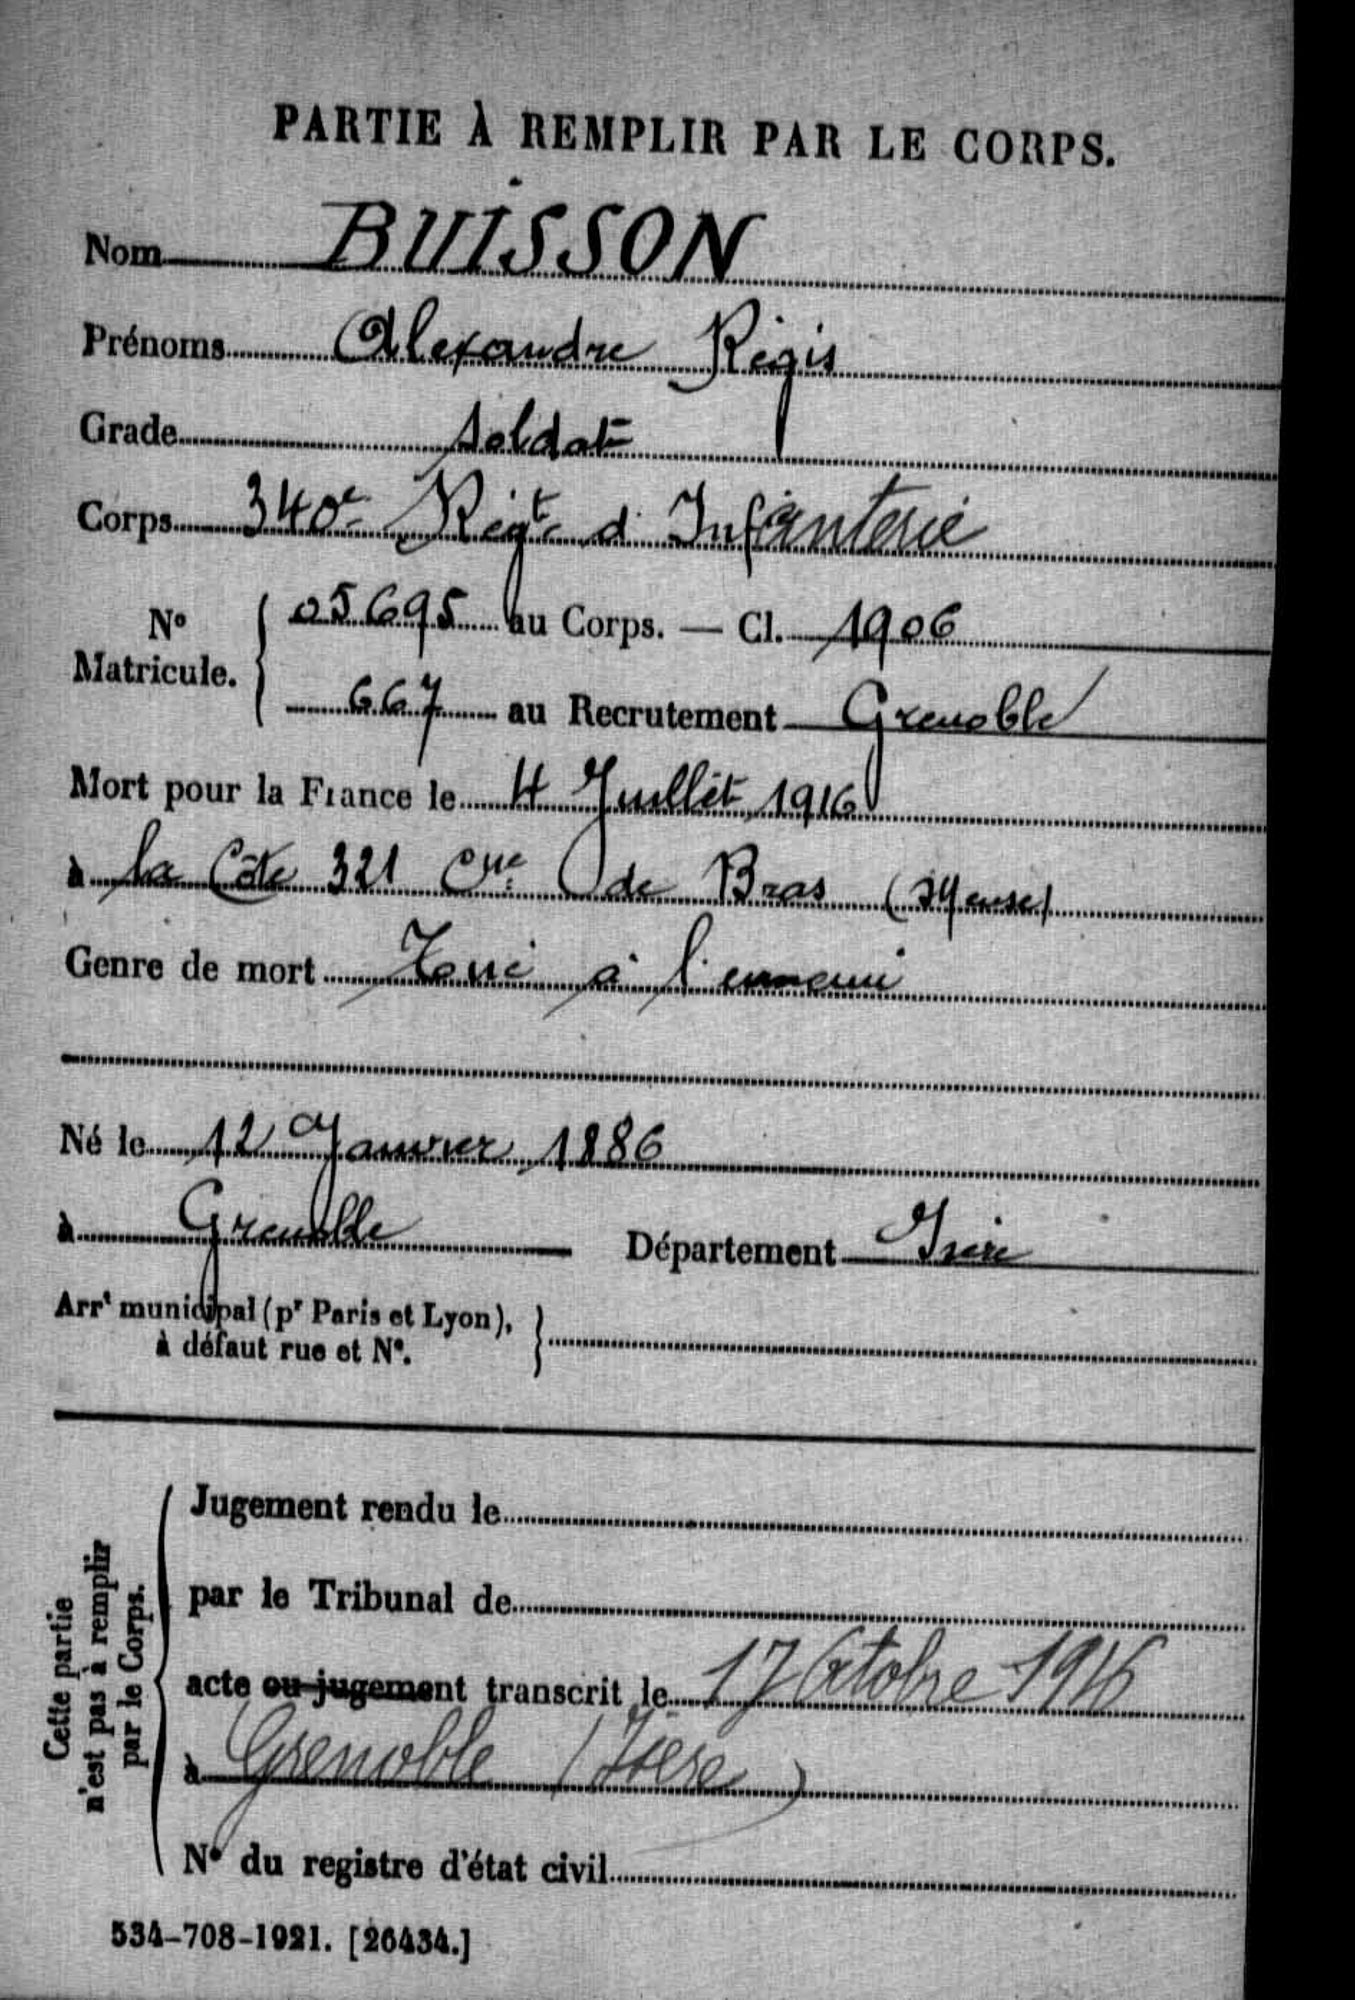 PARTIE À REMPLIR PAR LE CORPS.
Nom BUISSON
Prénoms Alexandre Régis
Grade soldat
Corps 340e Régt d'Infanterie
No Matricule. { 05695 au Corps. — Cl. 1906
667 au Recrutement Grenoble
Mort pour la France le 4 Juillet 1916
à la Côte 321 Cne de Bras (Meuse)
Genre de mort Tué à l'ennemi
Né le 12 Janvier 1886
à Grenoble Département Isère
Arrt municipal (pr Paris et Lyon), }
à défaut rue et No.
Cette partie
n'est pas à remplir
par le Corps.
Jugement rendu le
par le Tribunal de
acte ou jugement transcrit le 17 Octobre 1916
à Grenoble (Isère)
No du registre d'état civil
534-708-1921. [26434.]